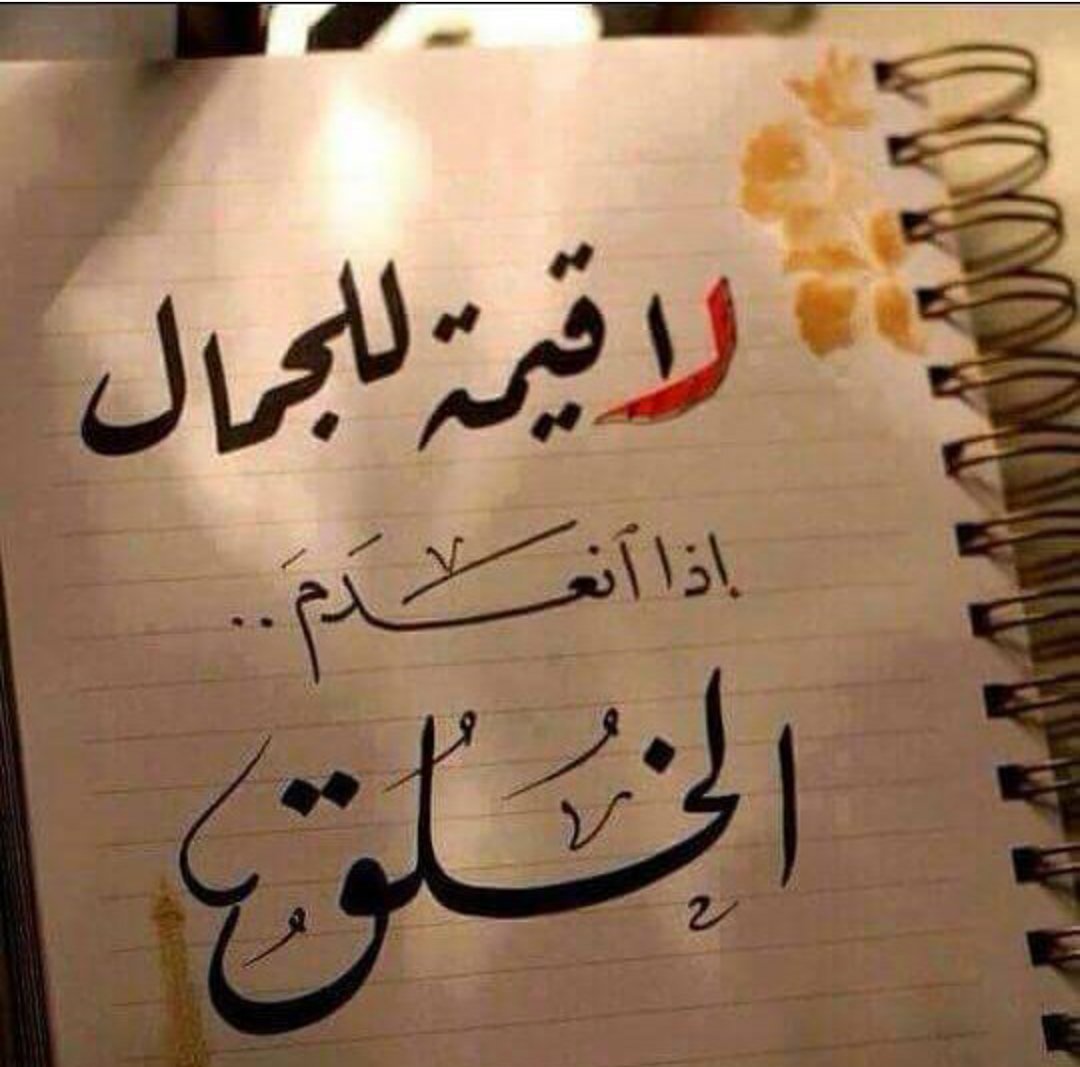 لا قيمة للجمال
إذا ٱنعدَمَ ..
الخُلُقُ